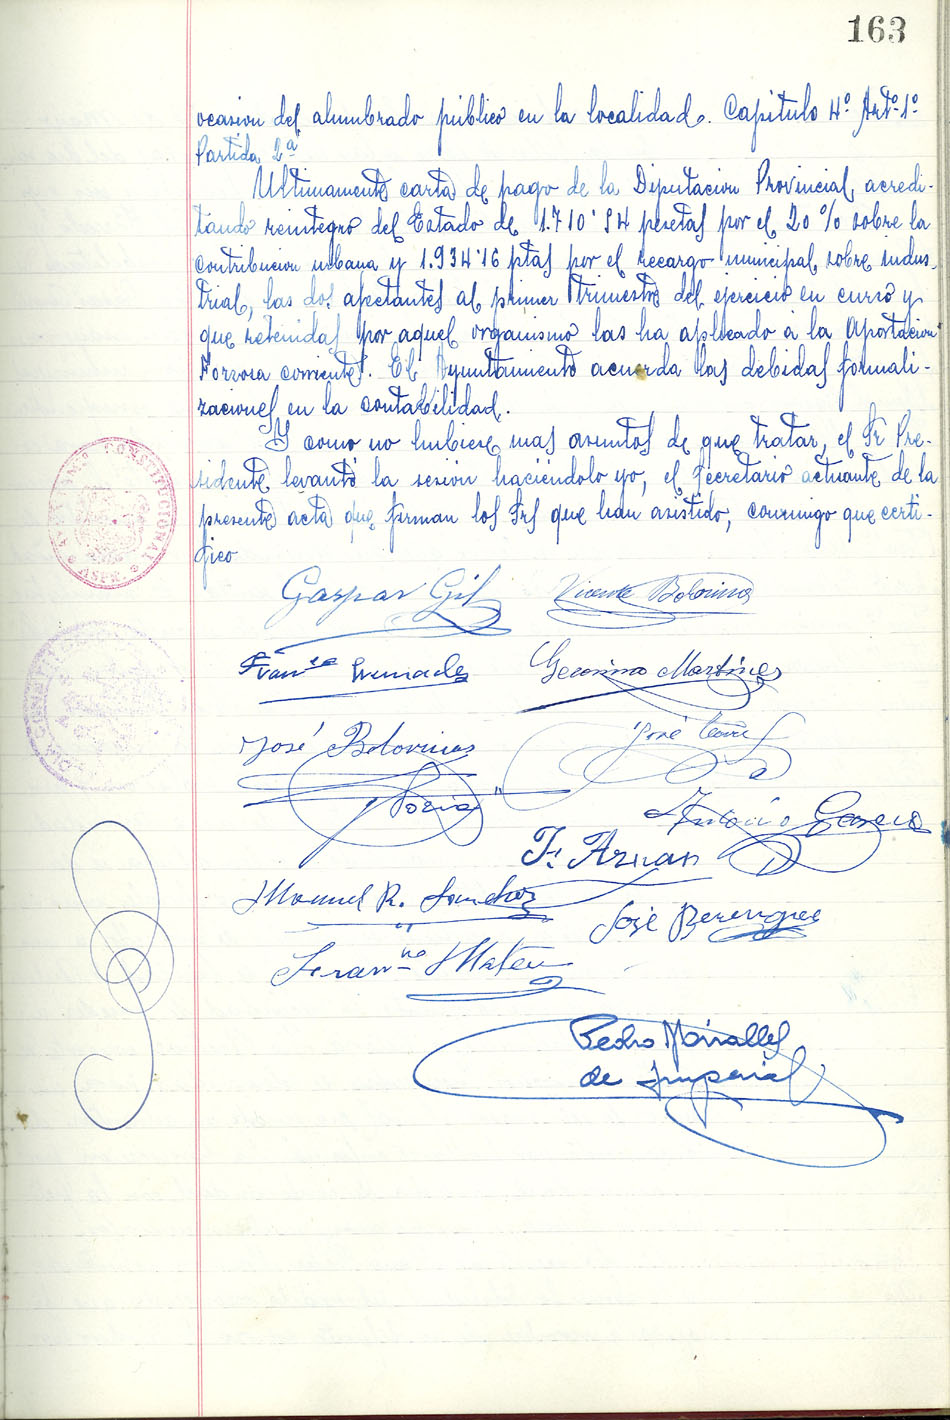 163
ocasion del alumbrado público en la localidad. Capitulo 4º Artº 1º
Partida 2ª
Ultimamente carta de pago de la Diputacion Provincial, acredi-
tando reintegro del Estado de 1.710'84 pesetas por el 20 % sobre la
contribucion urbana y 1.934'16 ptas por el recargo municipal sobre indus-
trial, las dos afectantes al primer trimestre del ejercicio en curso y
que retenidas por aquel organismo las ha aplicado a la Aportacion
Forzosa corriente. El Ayuntamiento acuerda las debidas formali-
zaciones en la contabilidad.
Y como no hubiese mas asuntos de que tratar, el Sr Pre-
sidente levantó la sesión haciéndolo yo, el secretario actuante, de la
presente acta que firman los Srs que han asistido, conmigo que certi-
fico
CONSTITUCIONAL
Gaspar Gil
Vicente Belovinos
Franco
Geronimo Martinez
José Belovinos
José
Soria
Antonio
F. Aznar
Manuel R. Sanchez
José Berenguer
Franco Mateu
Pedro Miralles
de Imperial